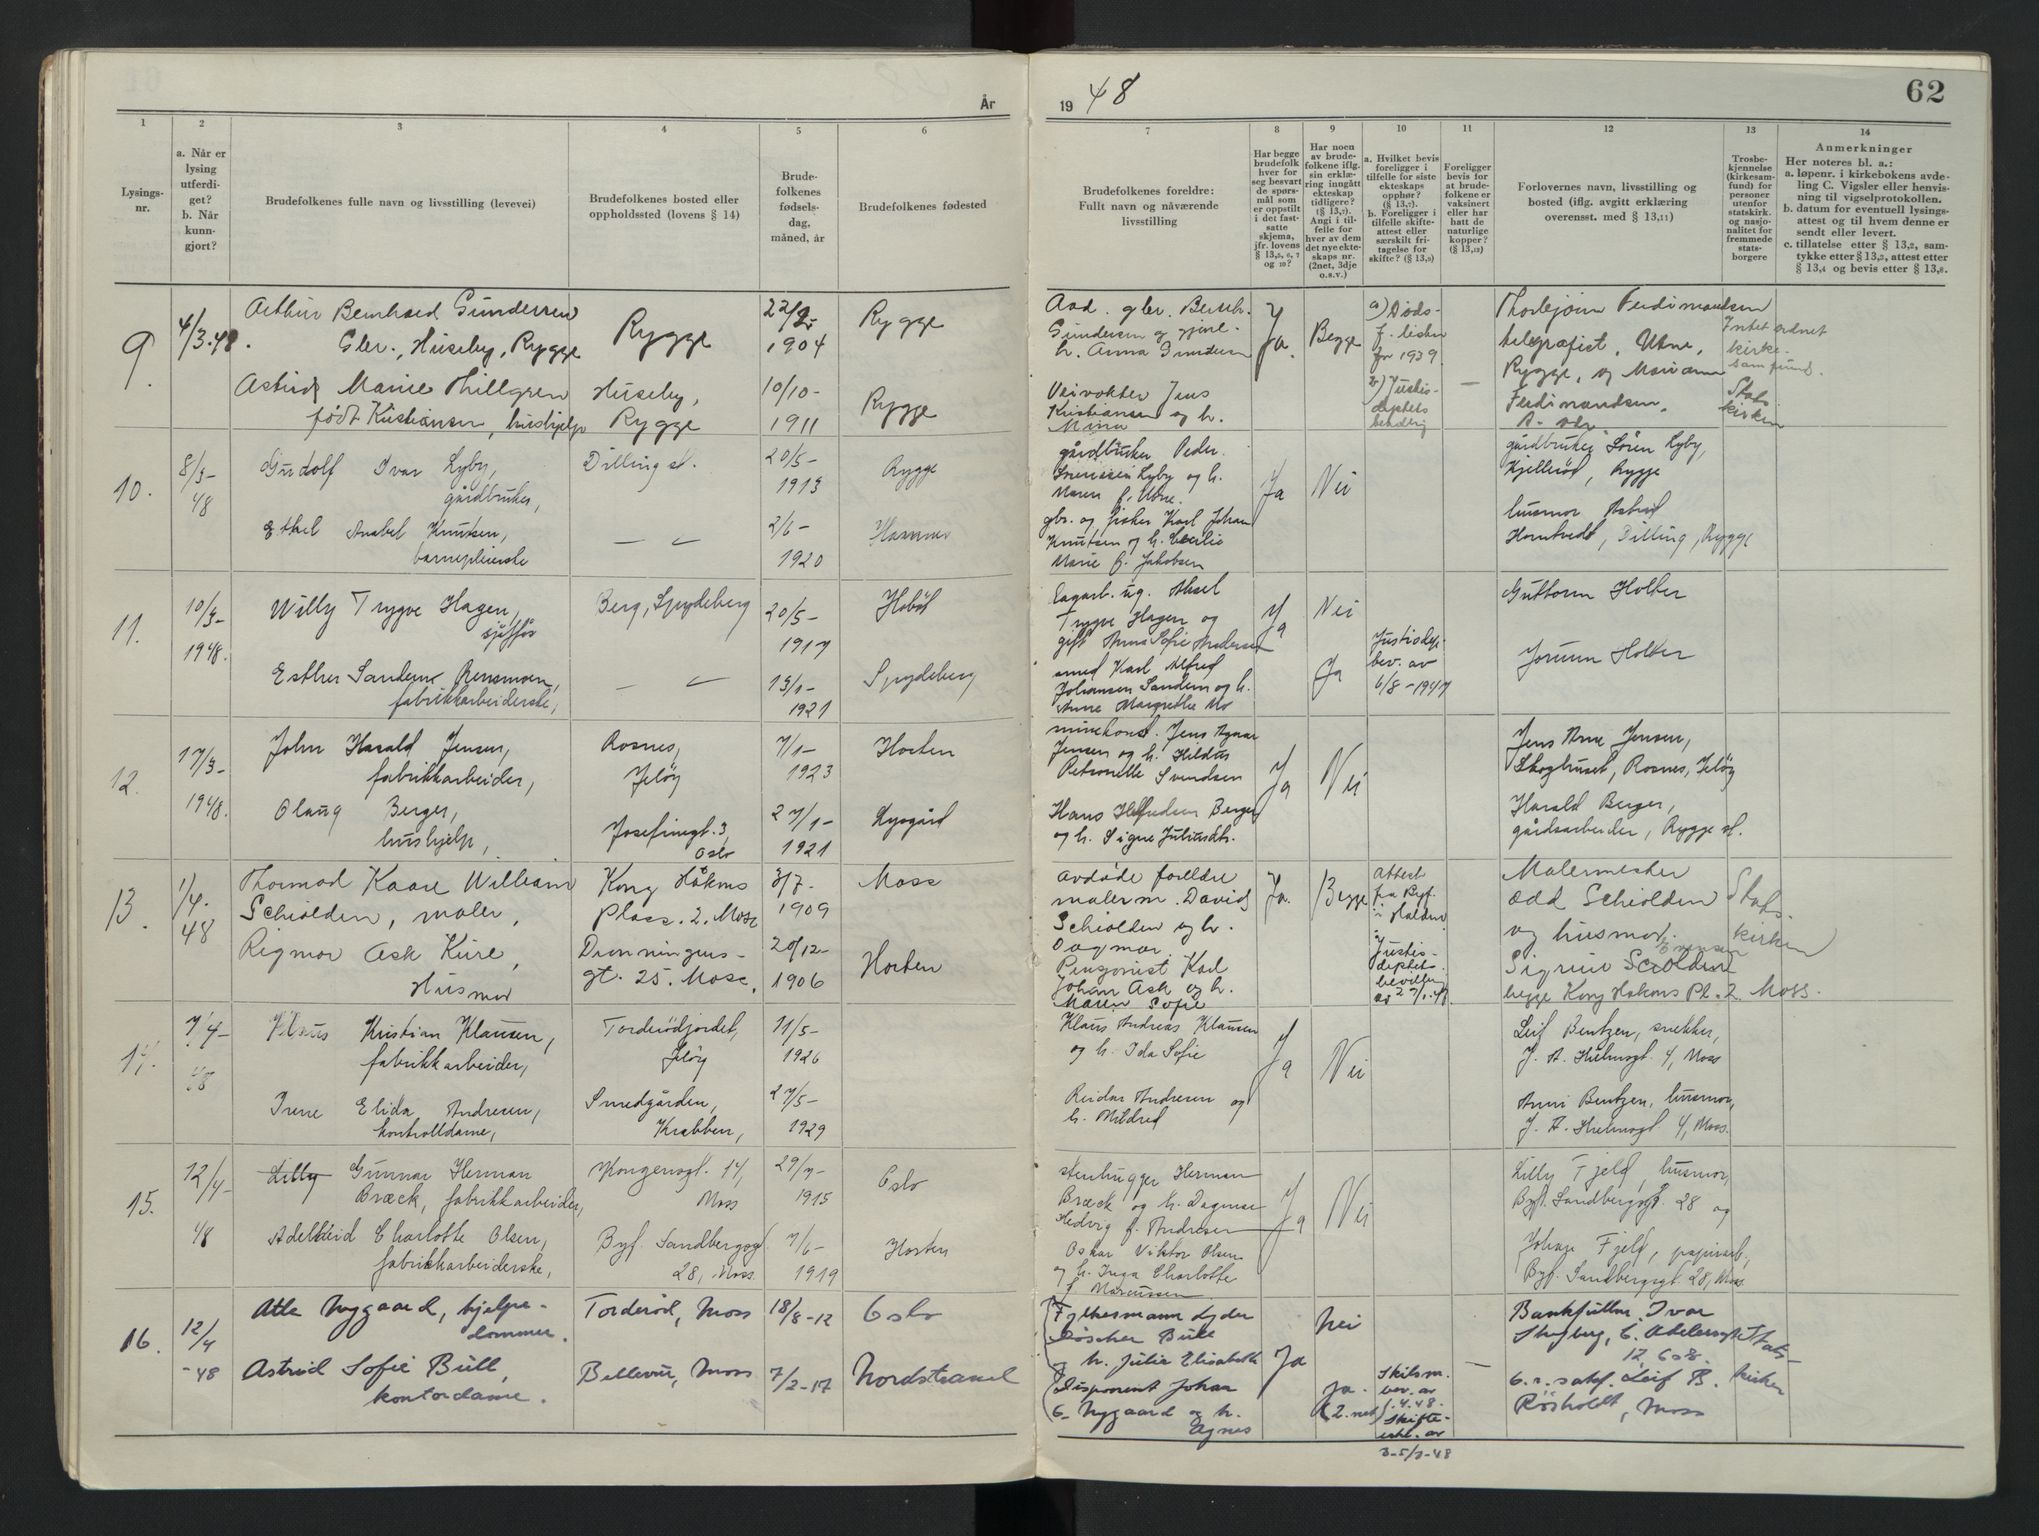 År
19 48
62
1
2
3
4
5
6
7
8
9
10
11
12
13
14
Lysings-
nr.
a. Når er
lysing
utferdi-
get?
b. Når
kunn-
gjort?
Brudefolkenes fulle navn og livsstilling (levevei)
Brudefolkenes bosted eller
oppholdssted (lovens § 14)
Brude-
folkenes
fødsels-
dag,
måned, år
Brudefolkenes fødested
Brudefolkenes foreldre:
Fullt navn og nåværende
livsstilling
Har begge
brudefolk
hver for
seg besvart
de spørs-
mål som
er oppstilt
i det fast-
satte
skjema,
jfr. lovens
§ 13,5, 6, 7
og 10?
Har noen
av brude-
folkene iflg.
sin erklæ-
ring inngått
ekteskap
tidligere?
(§ 13,7).
Angi i til-
felle for
hver av dem
det nye ekte-
skaps nr.
(2net, 3dje
o.s.v.)
a. Hvilket bevis
foreligger i
tilfelle for siste
ekteskaps
opphør?
(§ 13,7).
b. Foreligger i
tilfelle skifte-
attest eller
særskilt fri-
tagelse for
skifte? (§ 13,9)
Foreligger
bevis for
at brude-
folkene er
vaksinert
eller har
hatt de
naturlige
kopper?
(§ 13,12)
Forlovernes navn, livsstilling og
bosted (iflg. avgitt erklæring
overensst. med § 13,11)
Trosbe-
kjennelse
(kirkesam-
fund) for
personer
utenfor
statskirk.
og nasjo-
nalitet for
fremmede
stats-
borgere
Anmerkninger
Her noteres bl. a.:
a. løpenr. i kirkebokens avde-
ling C. Vigsler eller henvis-
ning til vigselprotokollen.
b. datum for eventuell lysings-
attest og til hvem denne er
sendt eller levert.
c. tillatelse etter § 13,2, sam-
tykke etter § 13,3, attest etter
§ 13,4 og bevis etter § 13,8.
9.
4/3.48.
Arthur Bernhard Gundersen
Gler., Huseby, Rygge
Rygge
1904
Rygge
Gundersen og
h. Anna Gundersen
Ja.
Begge
a) Døds-
for 1939
Ferdinandsen
telegrafist,
Rygge, og
Ferdinandsen,
Intet ordnet
kirke-
samfund.
Astrid Marie Thillgren
født Kristiansen, hushjelp
Huseby,
Rygge
10/10-
1911
Rygge
Veivokter Jens
Kristiansen og h.
b) Justis-
—
Stats
kirken
10.
8/3-
48
Gudolf Ivar Lyby,
gårdbruker,
Dilling st.
20/5-
1913
Rygge
gårdbruker Peder
Lyby og h.
Maren f.
Ja
Nei
gårdbruker Søren Lyby,
Rygge
Ethel Anabel Knutsen,
barnepleierske
1920
gbr. og fisker Karl Johan
Knutsen og h.
Marie f. Jakobsen
husmor Astrid
Dilling, Rygge
11.
10/3-
1948.
Willy Trygve Hagen,
sjåffør
Berg, Spydeberg
20/5-
1917
Hobøl
Trygve Hagen og
gift Anna Sofie Andersen
Ja
Nei
Guttorm Holter
Esther Sandem Rensmoen,
fabrikkarbeiderske,
13/1-
1921
Spydeberg
smed Karl Alfred
Johansen Sandem og h.
Anne Margrethe Mo
Ja
Justisdep.
bev. av
6/8-1947
Jorunn Holter
12.
17/3-
1948.
John Harald Jensen,
fabrikkarbeider,
Rosnes,
Jeløy
7/1-
1923
Horten
Jensen og h.
Petronelle Svendsen
Ja
Nei
Jens Arne Jensen,
Skoghuset, Rosnes, Jeløy
Olaug Berger,
hushjelp,
Josefinegt. 3,
Oslo
27/1-
1921
Berger
og h. Signe Juliusdt.
Harald Berger,
gårdsarbeider, Rygge st.
13.
1/4.
48
Thormod Kaare William
Schiolden, maler,
Kong Håkons
Plass. 2. Moss
3/7.
1909
Moss
avdøde foreldre
malerm. David
Schiolden og h.
Dagmar
Ja.
Begge
Attest
fra Byf.
i Halden
Malermester
Odd Schiolden
og husmor.
Stats-
kirken
Rigmor Ask Kure,
Husmor
Dronningens-
gt. 25. Moss.
20/12-
1906
Horten
Pensjonist Karl
Johan Ask og h.
Maren Sofie
Justis-
Sigrun
begge Kong Hakons Pl. 2. Moss.
14.
7/4-
48
Klaus Kristian Klausen,
fabrikkarbeider,
Torderødjordet,
Jeløy
11/5-
1926
Klaus Andreas Klausen
og h. Ida Sofie
Ja
Nei
Leif Bentzen, snekker,
4, Moss
Irene Elida Andresen,
kontrolldame,
Smedgården,
Krabben,
27/5-
1929
Reidar Andresen og
h. Mildred
Anni Bentzen, husmor,
4, Moss.
15.
12/4-
48
Lilly Gunnar Herman
Bræck, fabrikkarbeider,
Kongensgt. 14,
Moss
29/7-
1915
Oslo
stenhugger Herman
Bræck og h. Dagmar
Hedvig f. Andresen
Ja
Nei
Lilly Fjeld, husmor,
Byf. Sandbergsgt. 28 og
Adelheid Charlotte Olsen,
fabrikkarbeiderske,
Byf. Sandbergsgt
28, Moss
7/6-
1919
Horten
Oskar Viktor Olsen
og h. Inga Charlotte
f. Marcussen
Johan Fjeld, papirarb.,
Byf. Sandbergsgt 28, Moss
16.
12/4
-48
Atle Nygaard, hjelpe-
dommer.
Torderød, Moss
18/8-12
Oslo
Fylkesmann Lyder
Bull
og h. Julie Elisabeth
Ja
Nei
Bankfullm. Ivar
12 Oslo.
Stats-
kirken
Astrid Sofie Bull,
kontordame.
Bellevue, Moss
7/2-17
Nordstrand
Disponent Johan
G. Nygaard og h.
Agnes
Ja.
(2. net)
Skilsm.
bev. av
.4.48.
Skifte-
erkl. av
3-5/3-48
—
o.r.sakf. Leif B.
Røsholdt, Moss